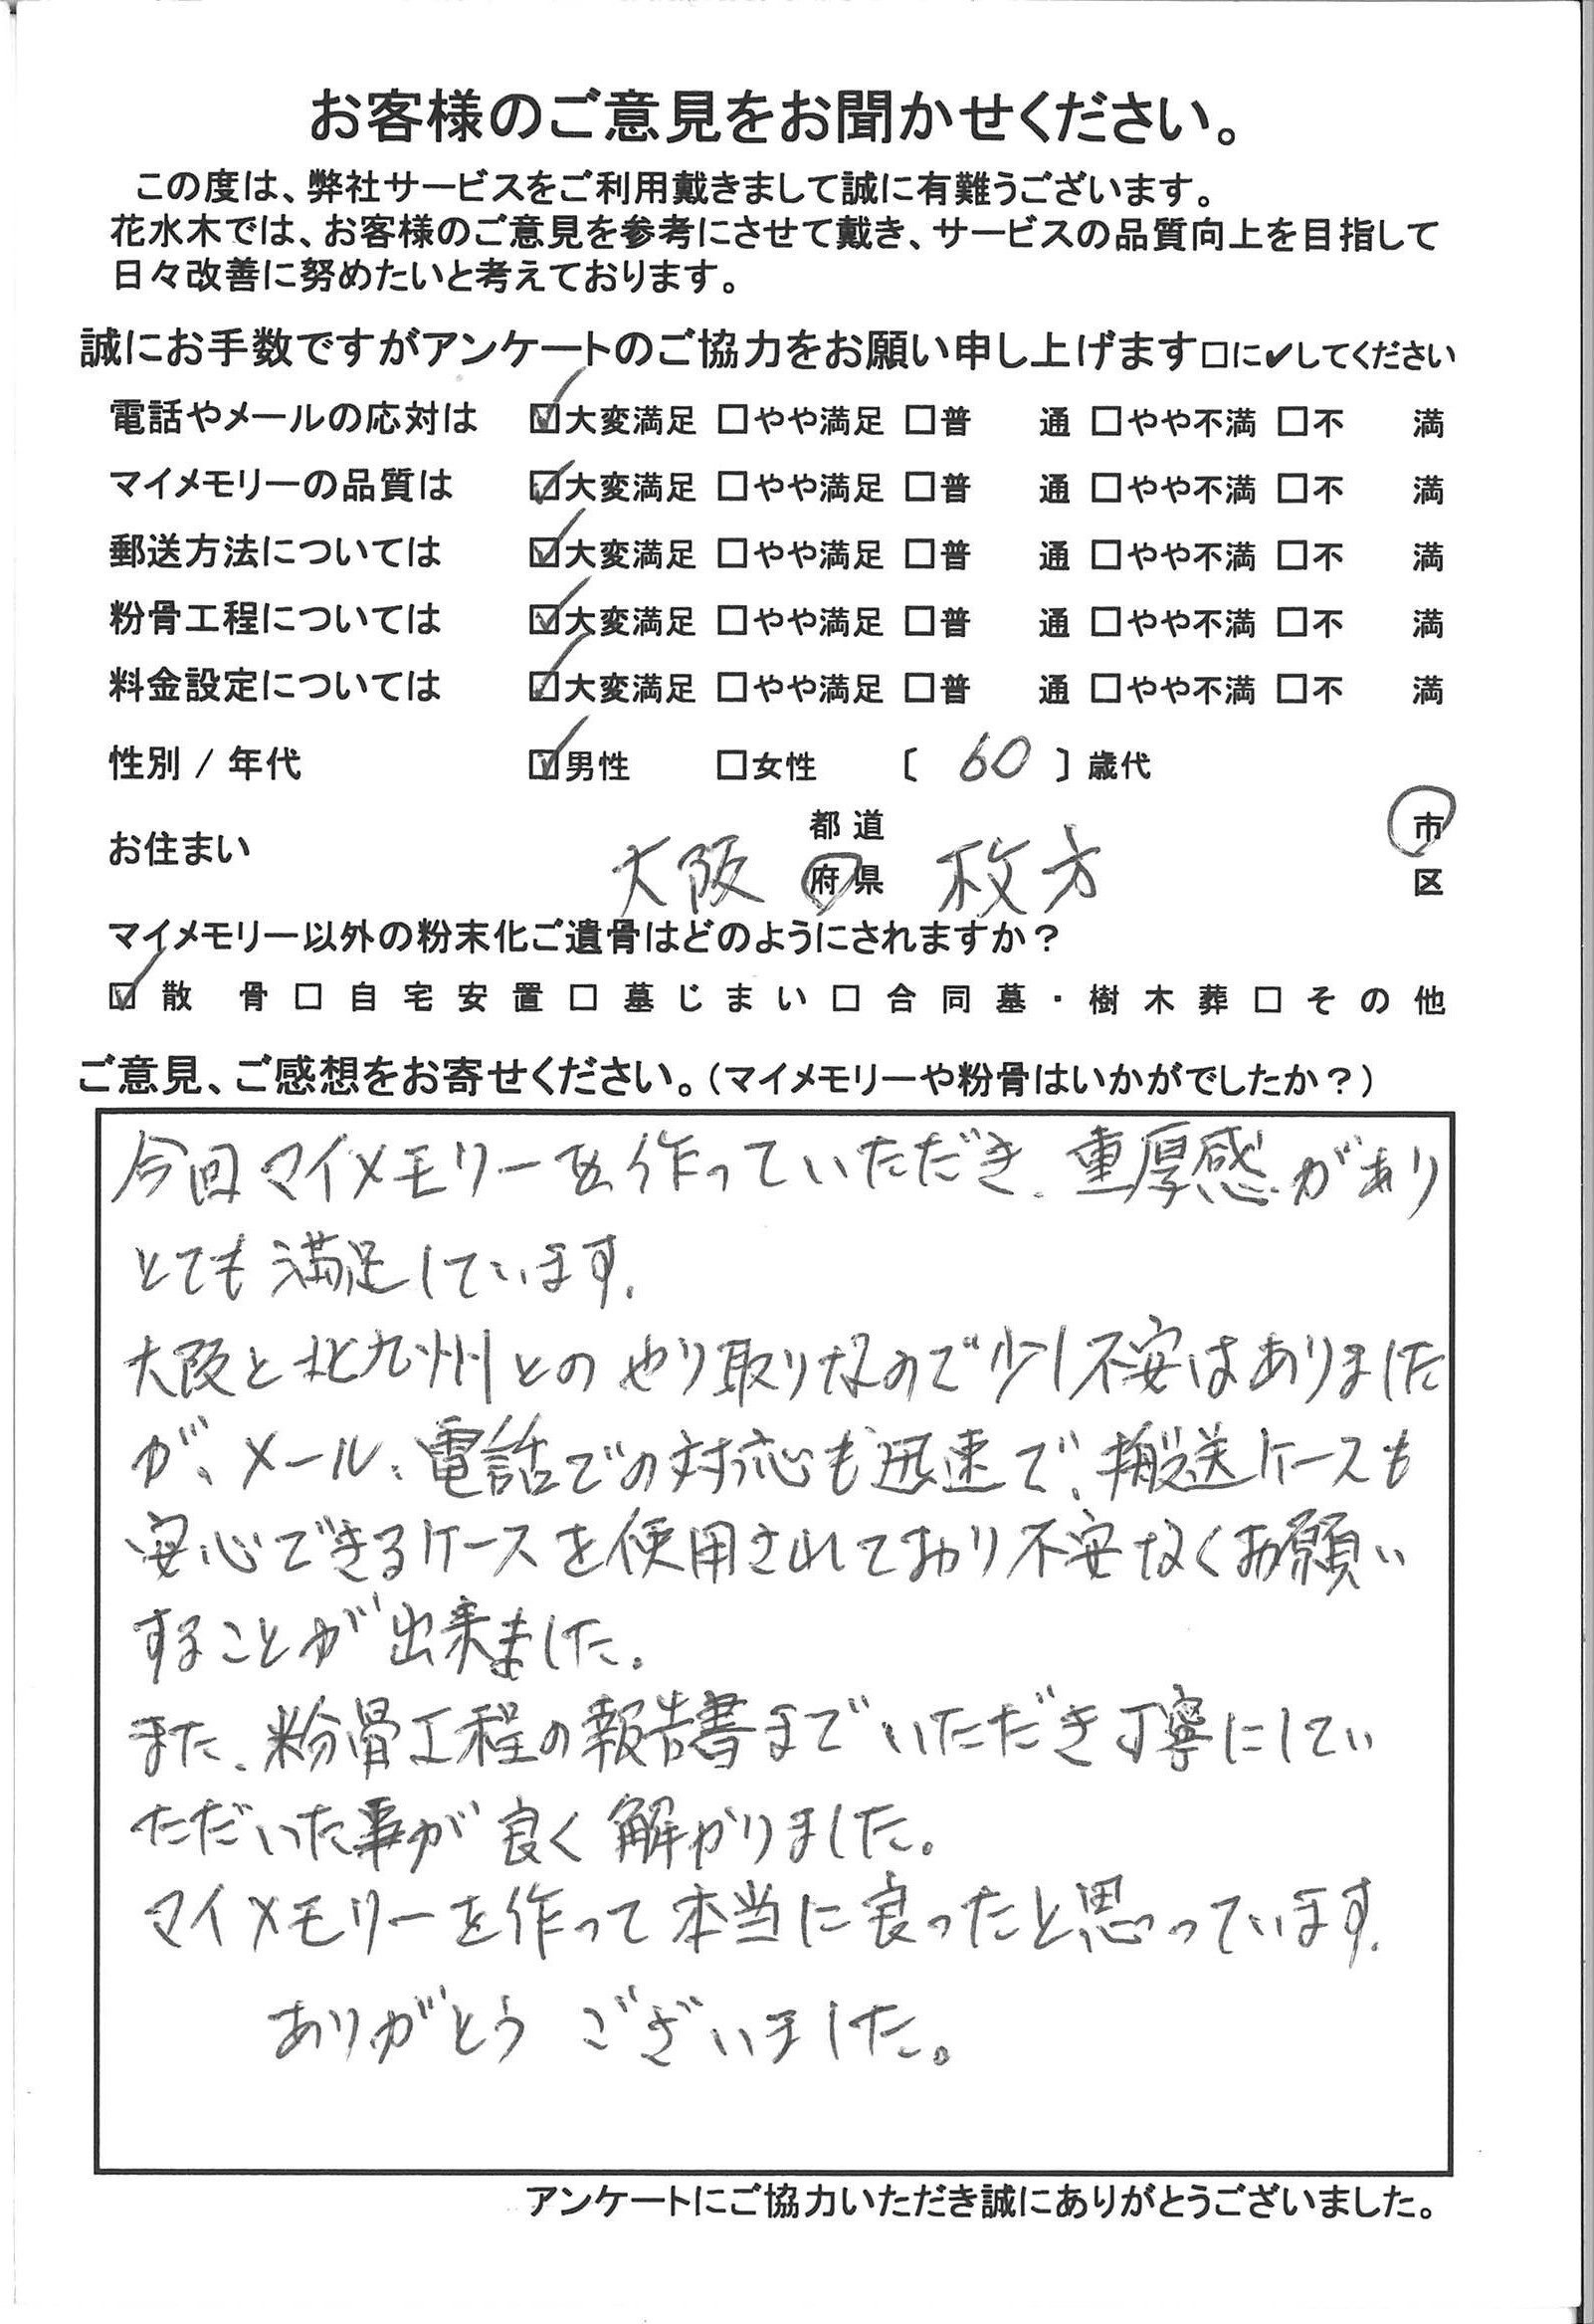 お客様のご意見をお聞かせください。
この度は、弊社サービスをご利用戴きまして誠に有難うございます。
花水木では、お客様のご意見を参考にさせて戴き、サービスの品質向上を目指して
日々改善に努めたいと考えております。
誠にお手数ですがアンケートのご協力をお願い申し上げます□に✔してください
電話やメールの応対は ☑大変満足 □やや満足 □普 通 □やや不満 □不 満
マイメモリーの品質は ☑大変満足 □やや満足 □普 通 □やや不満 □不 満
郵送方法については ☑大変満足 □やや満足 □普 通 □やや不満 □不 満
粉骨工程については ☑大変満足 □やや満足 □普 通 □やや不満 □不 満
料金設定については ☑大変満足 □やや満足 □普 通 □やや不満 □不 満
性別 / 年代 ☑男性 □女性 〔 60 〕歳代
お住まい 大阪 都道府県 枚方 市区
マイメモリー以外の粉末化ご遺骨はどのようにされますか?
☑散 骨 □自宅安置 □墓じまい □合同墓・樹木葬 □その他
ご意見、ご感想をお寄せください。(マイメモリーや粉骨はいかがでしたか?)
今回マイメモリーを作っていただき、重厚感があり
とても満足しています。
大阪と北九州とのやり取りなので少し不安はありました
が、メール、電話での対応も迅速で、搬送ケースも
安心できるケースを使用されており不安なくお願い
することが出来ました。
また、粉骨工程の報告書までいただき丁寧にしてい
ただいた事が良く解かりました。
マイメモリーを作って本当に良ったと思っています。
ありがとうございました。
アンケートにご協力いただき誠にありがとうございました。